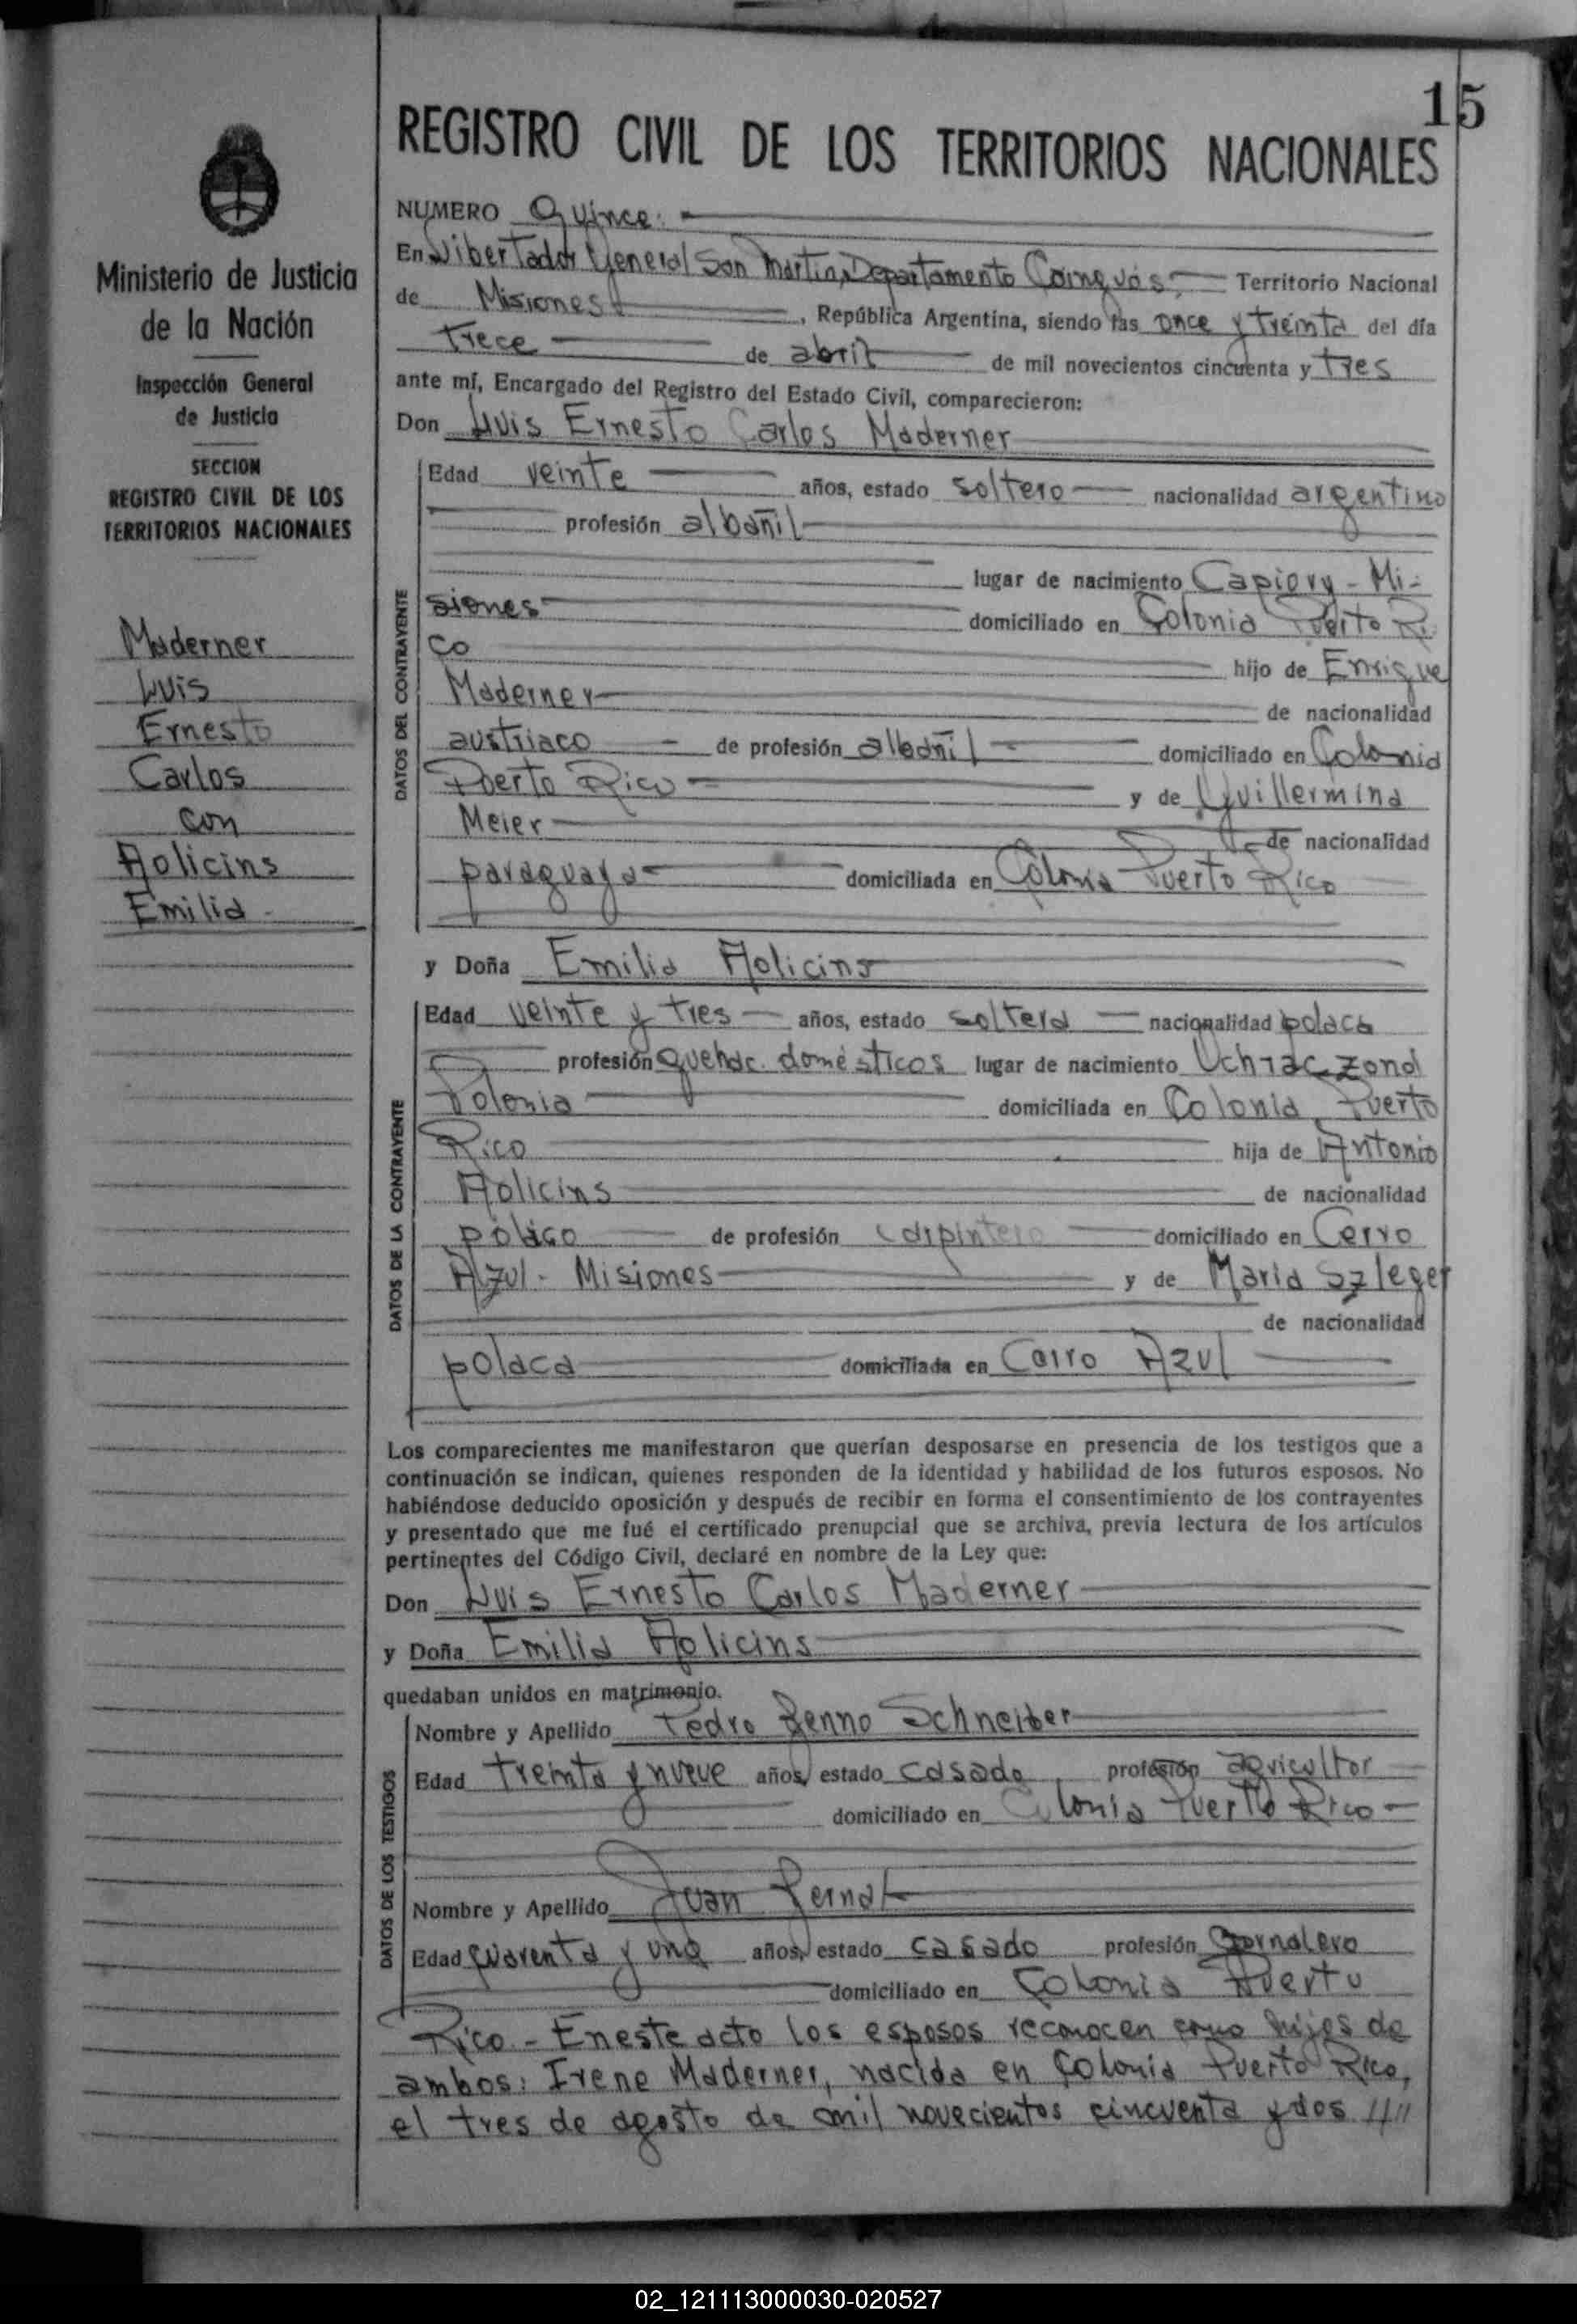 15
REGISTRO CIVIL DE LOS TERRITORIOS NACIONALES
Ministerio de Justicia
de la Nación
Inspección General
de Justicia
SECCION
REGISTRO CIVIL DE LOS
TERRITORIOS NACIONALES
Maderner
Luis
Ernesto
Carlos
con
Holicins
Emilia
NUMERO Quince.
En Libertador General San Martin, Departamento Cainguás Territorio Nacional
de Misiones, República Argentina, siendo las once y treinta del día
trece de abril de mil novecientos cincuenta y tres
ante mí, Encargado del Registro del Estado Civil, comparecieron:
Don Luis Ernesto Carlos Maderner
DATOS DEL CONTRAYENTE
Edad veinte años, estado soltero nacionalidad argentino
profesión albañil
lugar de nacimiento Capiovy - Mi-
siones domiciliado en Colonia Puerto Ri
co hijo de Enrique
Maderner de nacionalidad
austriaco de profesión albañil domiciliado en Colonia
Puerto Rico y de Guillermina
Meier de nacionalidad
paraguaya domiciliada en Colonia Puerto Rico
y Doña Emilia Holicins
DATOS DE LA CONTRAYENTE
Edad veinte y tres años, estado soltera nacionalidad polaca
profesión quehac. domésticos lugar de nacimiento
Polonia domiciliada en Colonia Puerto
Rico hija de Antonio
Holicins de nacionalidad
polaco de profesión carpintero domiciliado en Cerro
Azul - Misiones y de Maria Szleger
de nacionalidad
polaca domiciliada en Cerro Azul
Los comparecientes me manifestaron que querían desposarse en presencia de los testigos que a
continuación se indican, quienes responden de la identidad y habilidad de los futuros esposos. No
habiéndose deducido oposición y después de recibir en forma el consentimiento de los contrayentes
y presentado que me fué el certificado prenupcial que se archiva, previa lectura de los artículos
pertinentes del Código Civil, declaré en nombre de la Ley que:
Don Luis Ernesto Carlos Maderner
y Doña Emilia Holicins
quedaban unidos en matrimonio.
DATOS DE LOS TESTIGOS
Nombre y Apellido Pedro Benno Schneider
Edad treinta y nueve años, estado casado profesión agricultor
domiciliado en Colonia Puerto Rico
Nombre y Apellido Juan Bernat
Edad cuarenta y uno años, estado casado profesión Jornalero
domiciliado en Colonia Puerto
Rico.- En este acto los esposos reconocen como hijos de
ambos: Irene Maderner, nacida en Colonia Puerto Rico,
el tres de agosto de mil novecientos cincuenta y dos ////
02_121113000030-020527